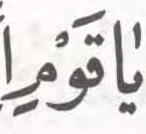 يٰا قَوْمِ ا